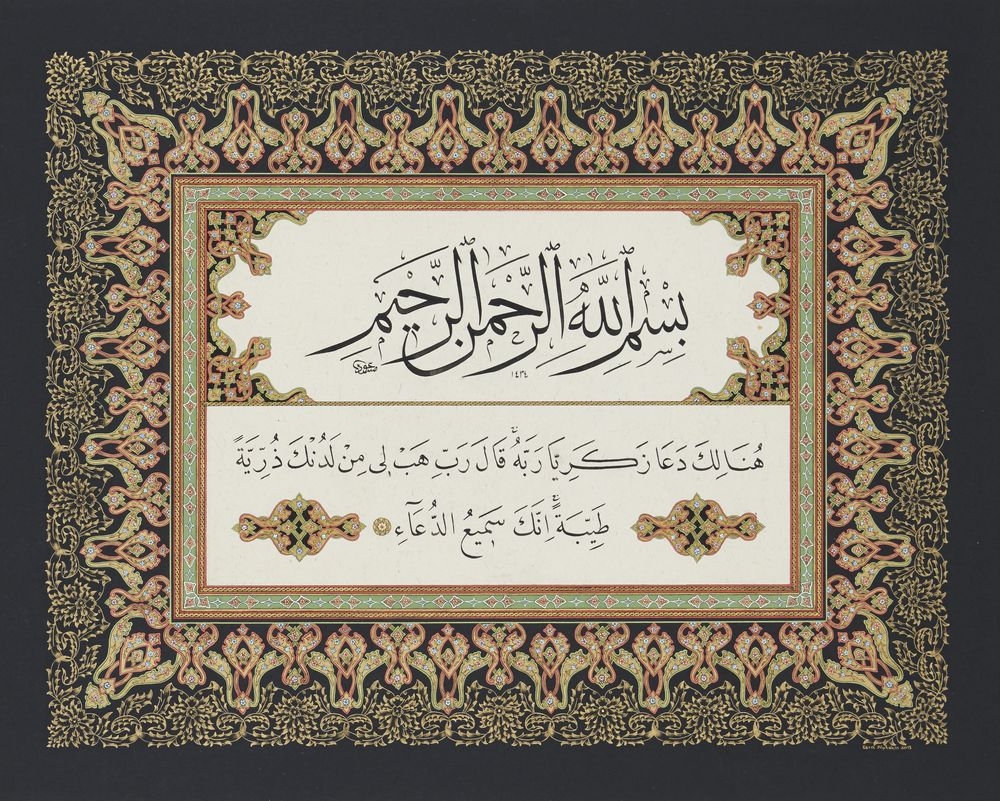 بِسْمِ اللّٰهِ الرَّحْمٰنِ الرَّحِيْمِ
١٤٣٤
هُنَالِكَ دَعَا زَكَرِيَّا رَبَّهُ ۚ قَالَ رَبِّ هَبْ لِى مِنْ لَدُنْكَ ذُرِّيَّةً
طَيِّبَةً ۚ اِنَّكَ سَمِيعُ الدُّعَاءِ